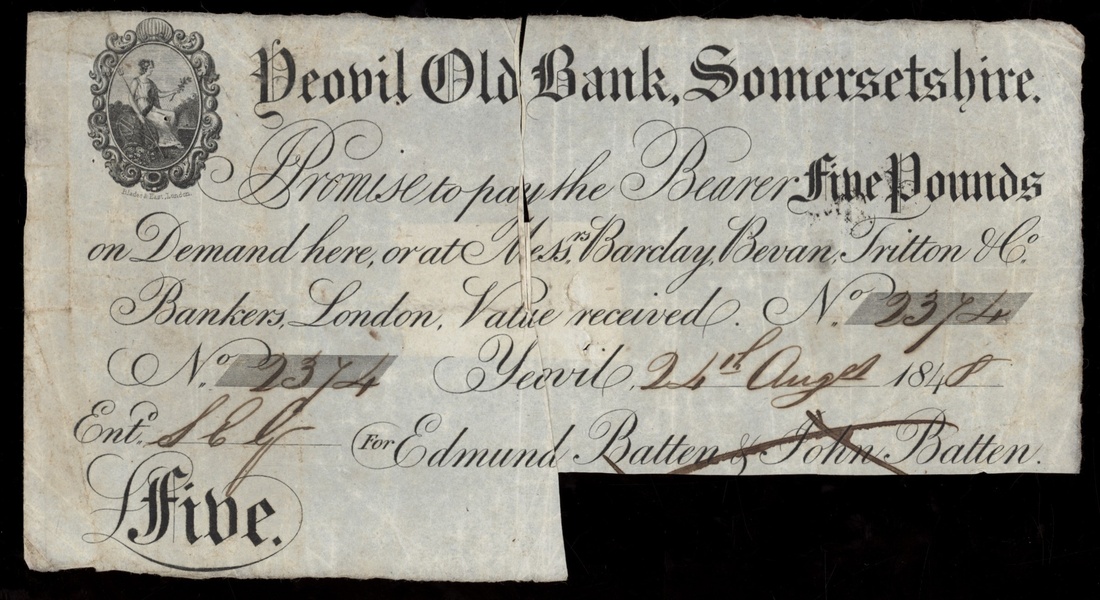 Yeovil Old Bank, Somersetshire.
I Promise to pay the Bearer Five Pounds
on Demand here, or at Mess.rs Barclay, Bevan, Tritton & Co.
Bankers, London, Value received. No. 2374
No. 2374 Yeovil, 24th Augst 1848
Entd. S E G For Edmund Batten & John Batten.
£Five.